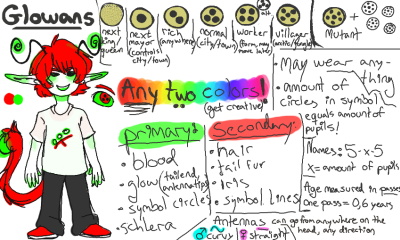 Glowans
next king/queen
next mayor (controls city/town)
rich (anywhere)
normal (city/town)
worker (farm, may move later)
alt.
villager (exile/tengle)
Mutant
+
Any two colors!
(get creative!)
primary:
• blood
• glow (tailend, antennatips)
• symbol circles
• schlera
secondary:
• hair
• tail fur
• Iris
• symbol lines
• May wear any-
thing
• amount of
circles in symbol
equals amount of
pupils!
Names: 5-x-5
x= amount of pupils
Age measured in passes
one pass = 0,6 years
Antennas can go from anywhere on the
head, any direction
♂ curvy ♀ straight